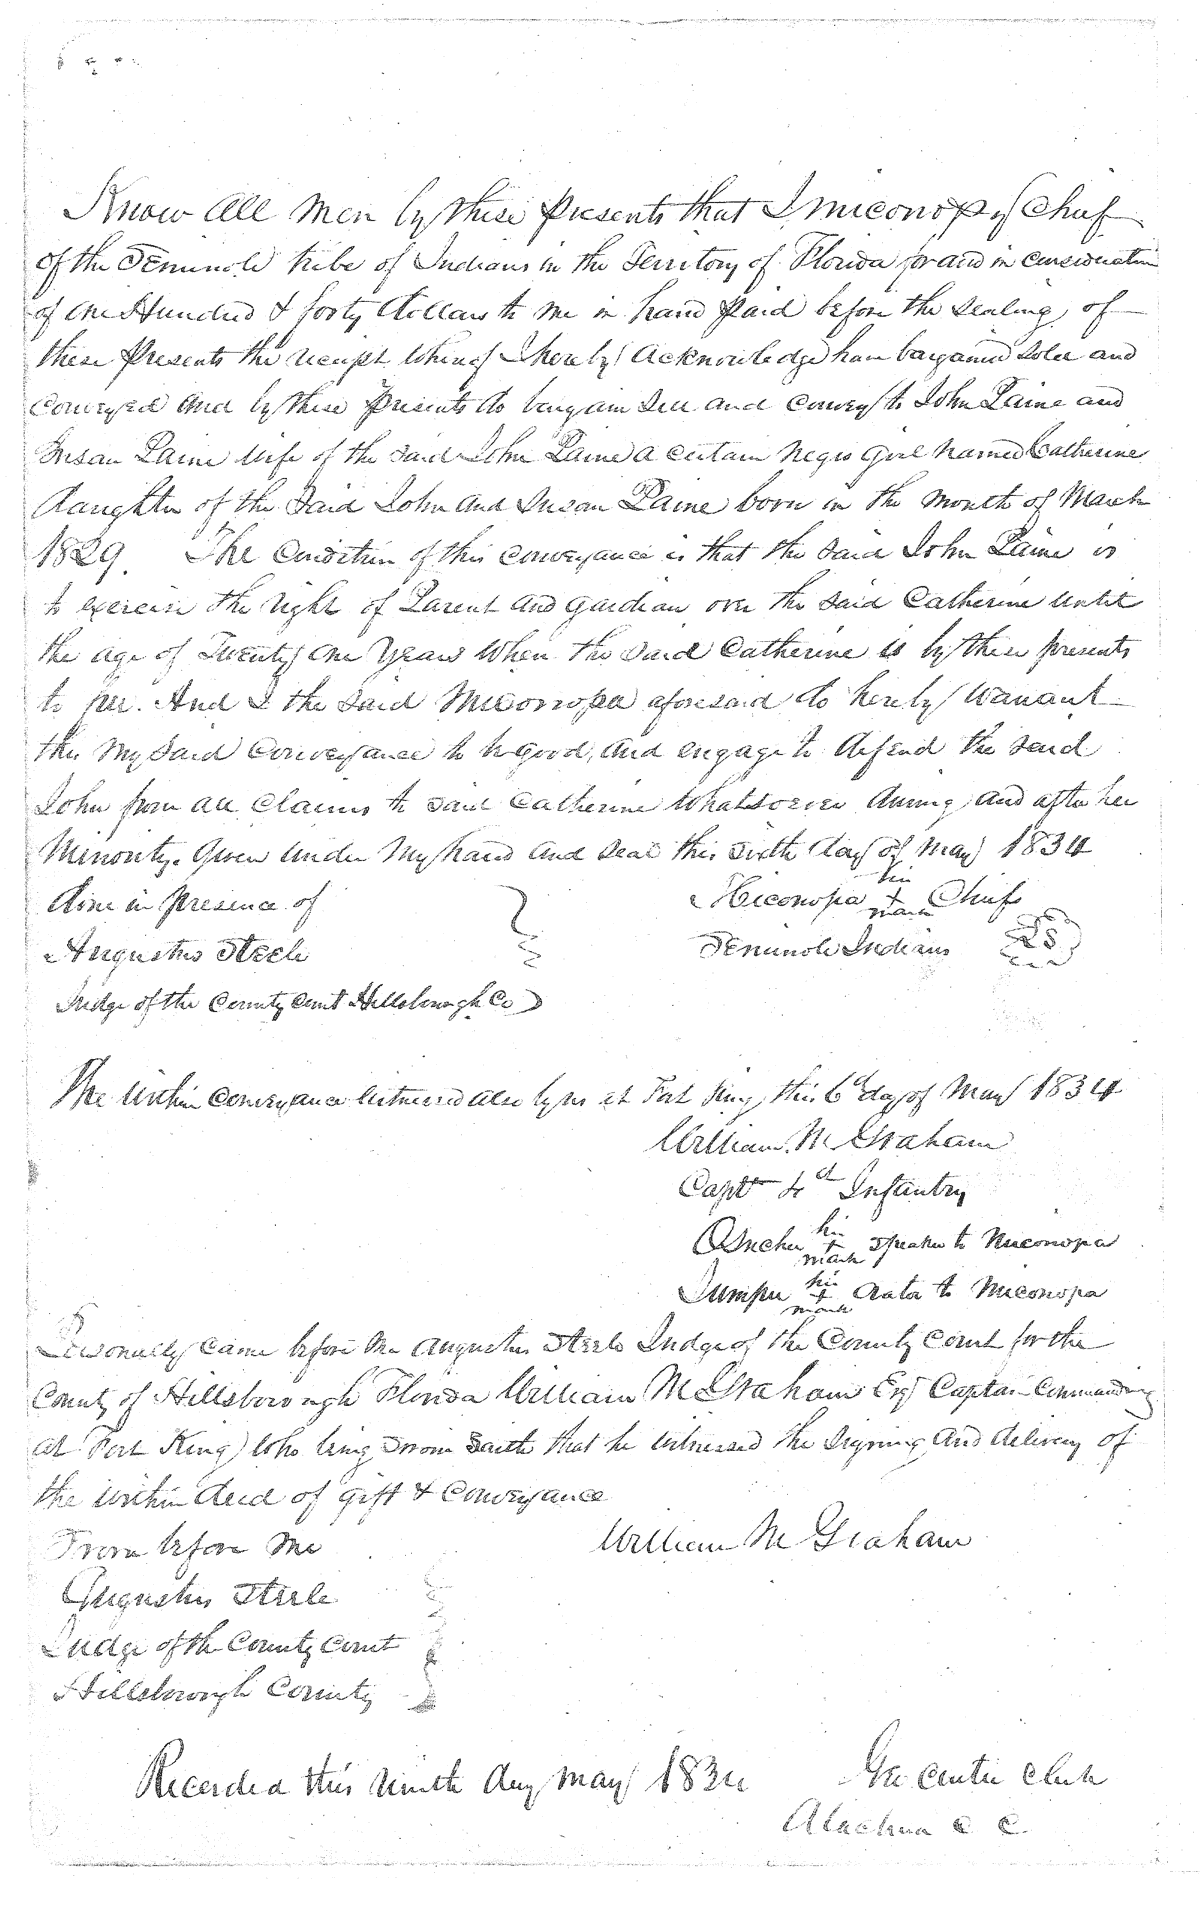 Know all Men by these Presents that I Miconopy Chief
of the Seminole tribe of Indians in the Territory of Florida for and in consideration
of one Hundred & forty dollars to me in hand Paid before the sealing of
these Presents the receipt whereof I hereby acknowledge have bargained sold and
Conveyed and by these Presents do bargain sell and convey to John Paine and
Susan Paine wife of the said John Paine a certain negro Girl named Catherine
daughter of the said John and Susan Paine born in the month of March
1829. The condition of this conveyance is that the said John Paine is
to exercise the right of Parent and gardian over the said Catherine until
the age of Twenty one years when the said Catherine is by these presents
to be free. And I the said Miconopa aforesaid do hereby warrant
this my said conveyance to be good, and engage to defend the said
John from all claims to said Catherine whatsoever during and after her
Minority. Given under my hand and seal this sixth day of May 1834
done in presence of
Miconopa his + mark Chief
Augustus Steele
Seminole Indians LS
Judge of the County Court Hillsborough Co
The within conveyance witnessed also by us at Fort King this 6th day of May 1834
William M Graham
Capt 4th Infantry
his + mark speaker to Miconopa
Jumper his + mark orator to Miconopa
Personally came before me Augustus Steele Judge of the County Court for the
County of Hillsborough Florida William M Graham Esq Captain Commanding
at Fort King who being sworn saith that he witnessed the signing and delivery of
the within deed of gift & conveyance
Sworn before me
William M Graham
Augustus Steele
Judge of the County Court
Hillsborough County
Recorded this ninth day May 1834
Clerk
Alachua C. C.